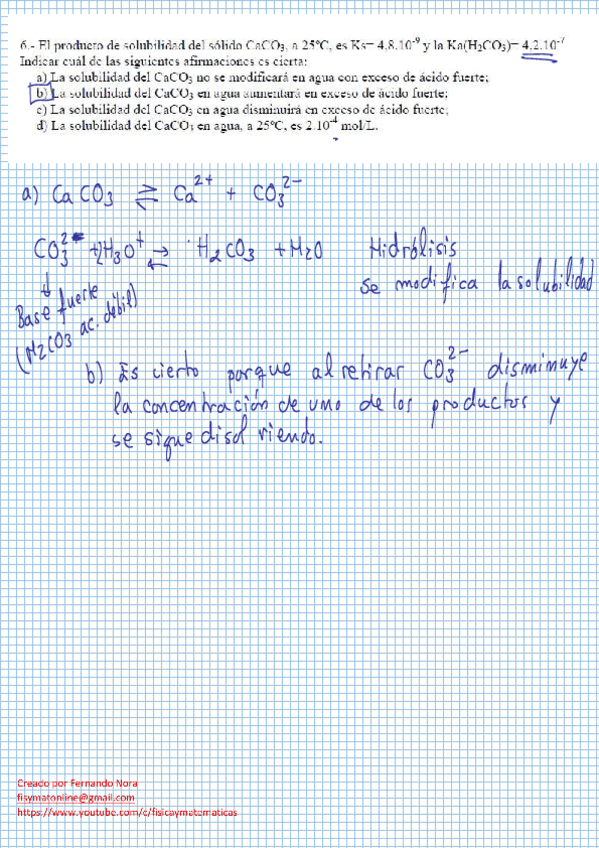 6.- El producto de solubilidad del sólido CaCO₃, a 25ºC, es Ks= 4.8.10⁻⁹ y la Ka(H₂CO₃)= 4.2.10⁻⁷
Indicar cuál de las siguientes afirmaciones es cierta:
a) La solubilidad del CaCO₃ no se modificará en agua con exceso de ácido fuerte;
b) La solubilidad del CaCO₃ en agua aumentará en exceso de ácido fuerte;
c) La solubilidad del CaCO₃ en agua disminuirá en exceso de ácido fuerte;
d) La solubilidad del CaCO₃ en agua, a 25ºC, es 2.10⁻⁴ mol/L.
a) CaCO₃ ⇌ Ca²⁺ + CO₃²⁻
CO₃²⁻ + 2H₃O⁺ ⇌ H₂CO₃ + H₂O Hidrólisis
se modifica la solubilidad
↓
Base fuerte
(H₂CO₃ ac. débil)
b) Es cierto porque al retirar CO₃²⁻ disminuye
la concentración de uno de los productos y
se sigue disolviendo.
Creado por Fernando Nora
fisymatonline@gmail.com
https://www.youtube.com/c/fisicaymatematicas